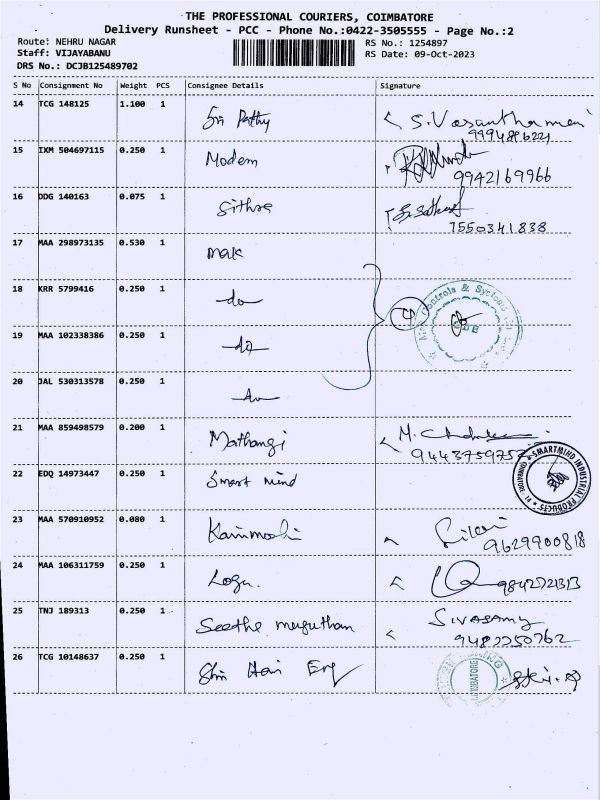 THE PROFESSIONAL COURIERS, COIMBATORE
Delivery Runsheet - PCC - Phone No.:0422-3505555 - Page No.:2
Route: NEHRU NAGAR
RS No.: 1254897
Staff: VIJAYABANU
RS Date: 09-Oct-2023
DRS No.: DCJB125489702
S No Consignment No Weight PCS Consignee Details Signature
14 TCG 148125 1.100 1 Sri Pathy S. Vasanthamani
9994896221
15 IXM 504697115 0.250 1 Modem
9942169966
16 DDG 140163 0.075 1 Sithre
7550341838
17 MAA 298973135 0.530 1 mak
18 KRR 5799416 0.250 1 do
19 MAA 102338386 0.250 1 do
20 JAL 530313578 0.250 1 do
21 MAA 859498579 0.200 1 Mathangi
22 EDQ 14973447 0.250 1 Smart mind
SMARTMIND INDUSTRIAL PRODUCTS
23 MAA 570910952 0.080 1 Kanimozhi
9629900818
24 MAA 106311759 0.250 1 Logu.
9842721313
25 TNJ 189313 0.250 1 Seethe SIVASAMY
9487750762
26 TCG 10148637 0.250 1 Shri Hari Eng